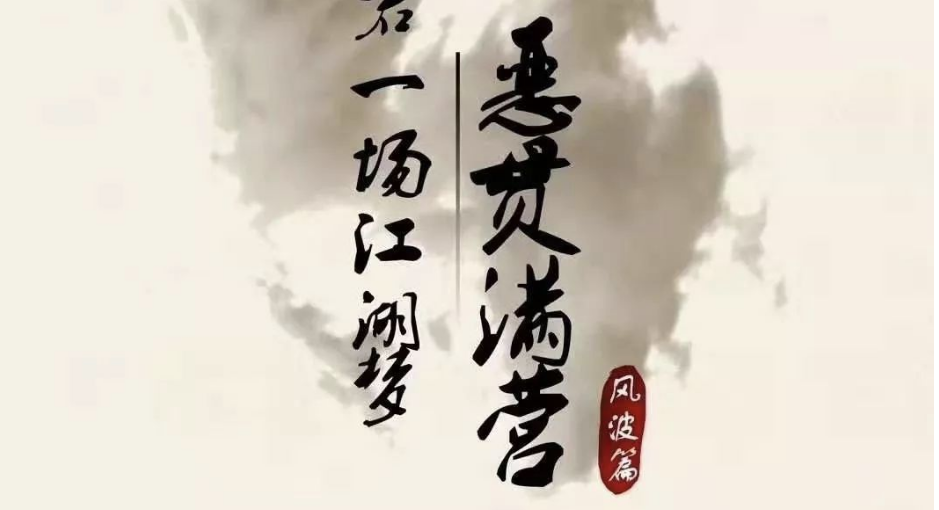 恶贯满营
风波篇
一场江湖梦